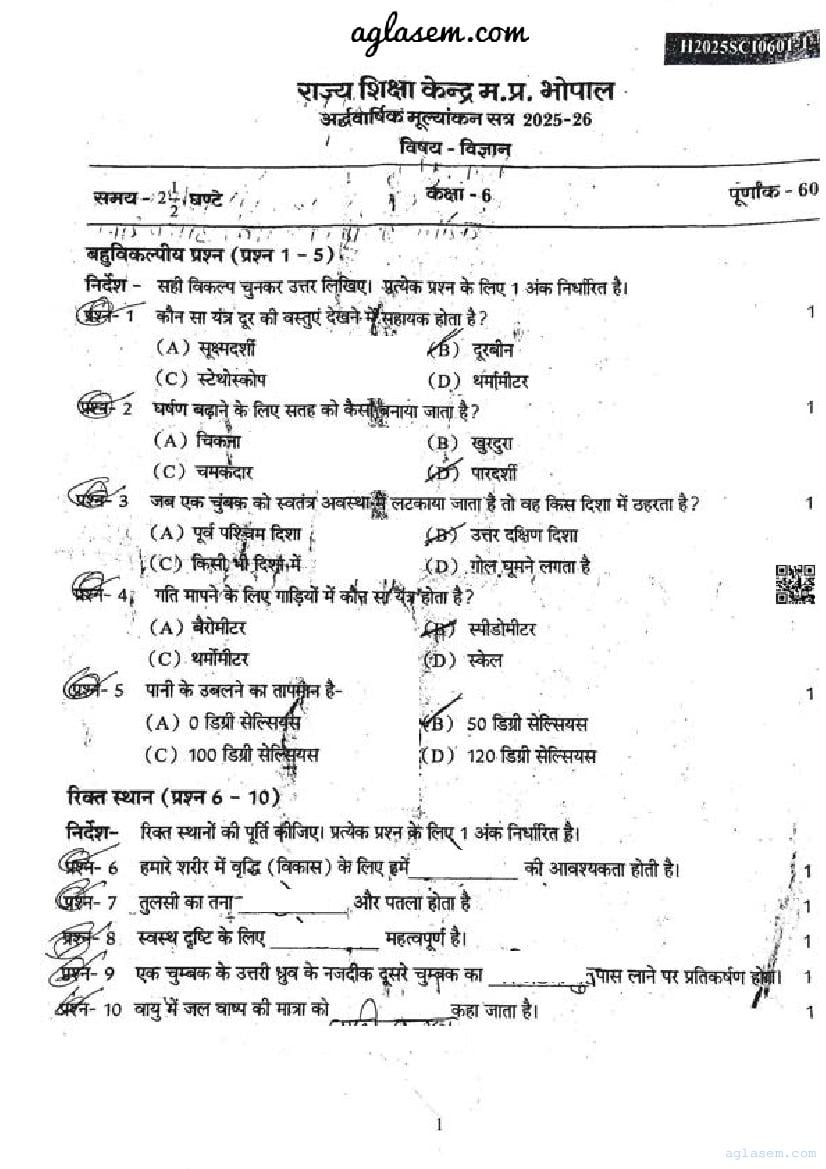 aglasem.com
H2025SCI0601-1
राज्य शिक्षा केन्द्र म.प्र. भोपाल
अर्द्धवार्षिक मूल्यांकन सत्र 2025-26
विषय - विज्ञान
समय - 2 1/2 घण्टे कक्षा - 6 पूर्णांक - 60
बहुविकल्पीय प्रश्न (प्रश्न 1 - 5)
निर्देश - सही विकल्प चुनकर उत्तर लिखिए। प्रत्येक प्रश्न के लिए 1 अंक निर्धारित है।
प्रश्न- 1 कौन सा यंत्र दूर की वस्तुएं देखने में सहायक होता है? 1
(A) सूक्ष्मदर्शी (B) दूरबीन
(C) स्टेथोस्कोप (D) थर्मामीटर
प्रश्न- 2 घर्षण बढ़ाने के लिए सतह को कैसा बनाया जाता है? 1
(A) चिकना (B) खुरदुरा
(C) चमकदार (D) पारदर्शी
प्रश्न- 3 जब एक चुंबक को स्वतंत्र अवस्था में लटकाया जाता है तो वह किस दिशा में ठहरता है? 1
(A) पूर्व पश्चिम दिशा (B) उत्तर दक्षिण दिशा
(C) किसी भी दिशा में (D) गोल घूमने लगता है
प्रश्न- 4 गति मापने के लिए गाड़ियों में कौन सा यंत्र होता है?
(A) बैरोमीटर (B) स्पीडोमीटर
(C) थर्मोमीटर (D) स्केल
प्रश्न- 5 पानी के उबलने का तापमान है- 1
(A) 0 डिग्री सेल्सियस (B) 50 डिग्री सेल्सियस
(C) 100 डिग्री सेल्सियस (D) 120 डिग्री सेल्सियस
रिक्त स्थान (प्रश्न 6 - 10)
निर्देश- रिक्त स्थानों की पूर्ति कीजिए। प्रत्येक प्रश्न के लिए 1 अंक निर्धारित है।
प्रश्न- 6 हमारे शरीर में वृद्धि (विकास) के लिए हमें__________ की आवश्यकता होती है। 1
प्रश्न- 7 तुलसी का तना __________ और पतला होता है 1
प्रश्न- 8 स्वस्थ दृष्टि के लिए __________ महत्वपूर्ण है। 1
प्रश्न- 9 एक चुम्बक के उत्तरी ध्रुव के नजदीक दूसरे चुम्बक का __________ पास लाने पर प्रतिकर्षण होगा। 1
प्रश्न- 10 वायु में जल वाष्प की मात्रा को __________ कहा जाता है। 1
1
aglasem.com